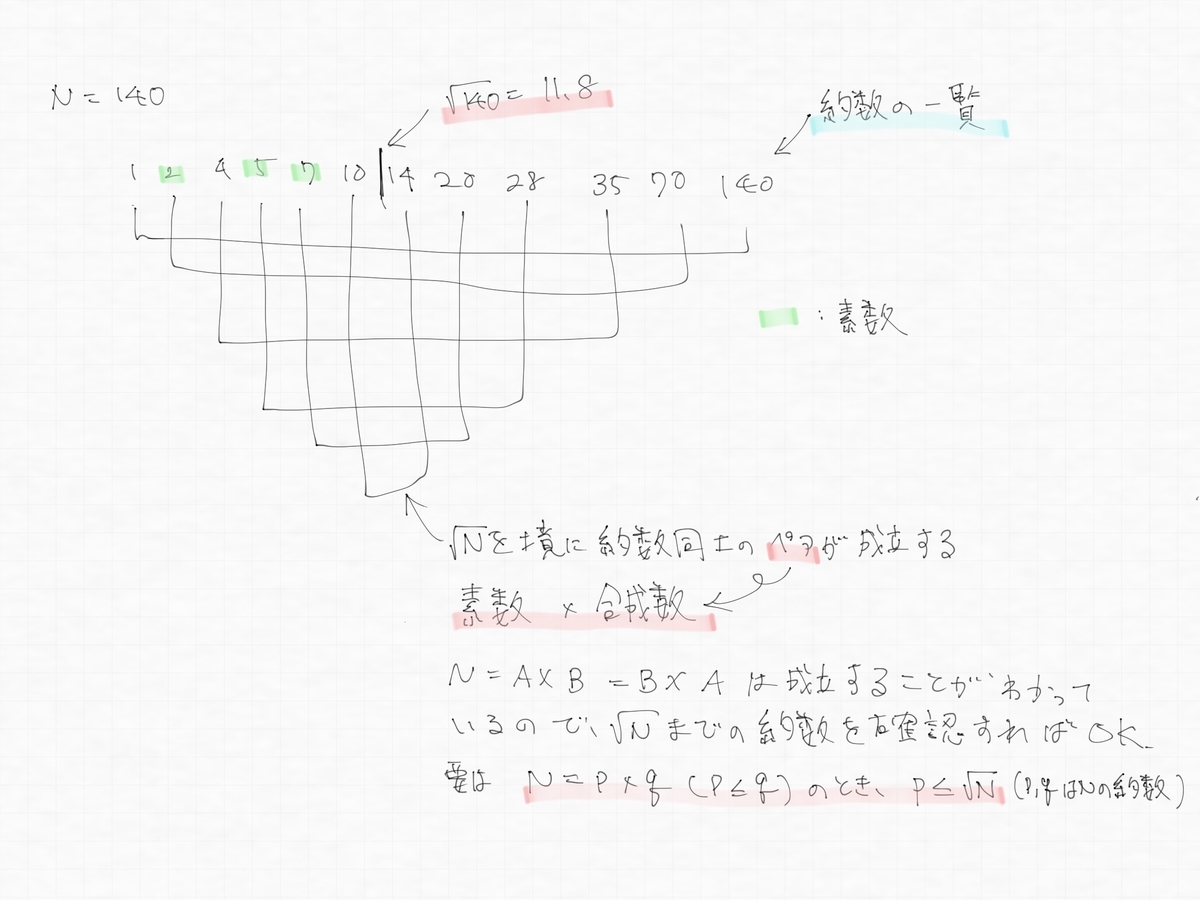 N = 140
√140 = 11.8
約数の一覧
1 2 4 5 7 10 14 20 28 35 70 140
: 素数
√Nを境に約数同士のペアが成立する
素数 × 合成数
N = A × B = B × A は成立することがわかって
いるので、√Nまでの約数を確認すればOK.
要は N = P × q (P ≤ q) のとき、P ≤ √N (P,qはNの約数)